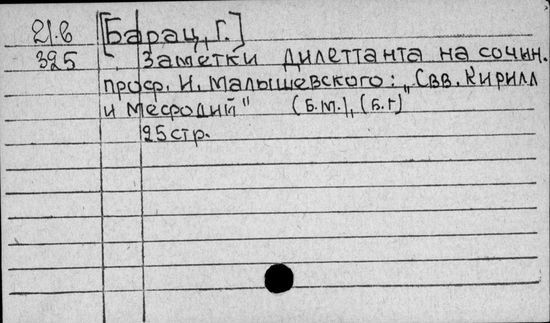 21.6 [Барац, Г.]
395 Заметки дилеттанта на сочин.
проф. И. Малышевского: „Свв. Кирилл
и Мефодий" (Б.м.), (Б.г)
25стр.